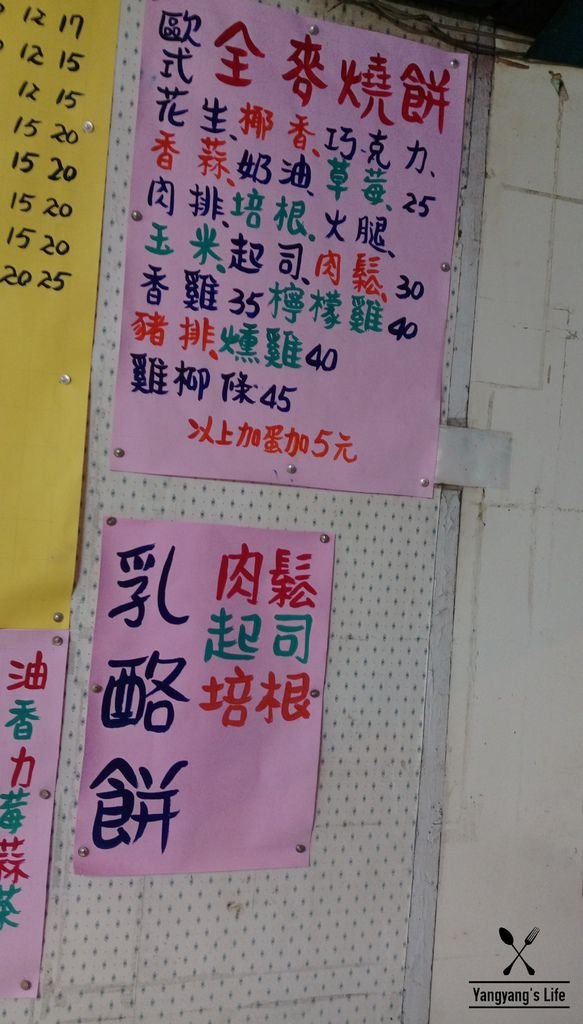 12 17
12 15
12 15
15 20
15 20
15 20
15 20
20 25
歐式 全麥燒餅
花生、椰香、巧克力、
香蒜、奶油、草莓、25
肉排、培根、火腿、
玉米、起司、肉鬆、30
香雞35檸檬雞40
豬排、燻雞40
雞柳條45
以上加蛋加5元
乳酪餅
肉鬆
起司
培根
油
香
力
莓
蒜
茶
Yangyang's Life